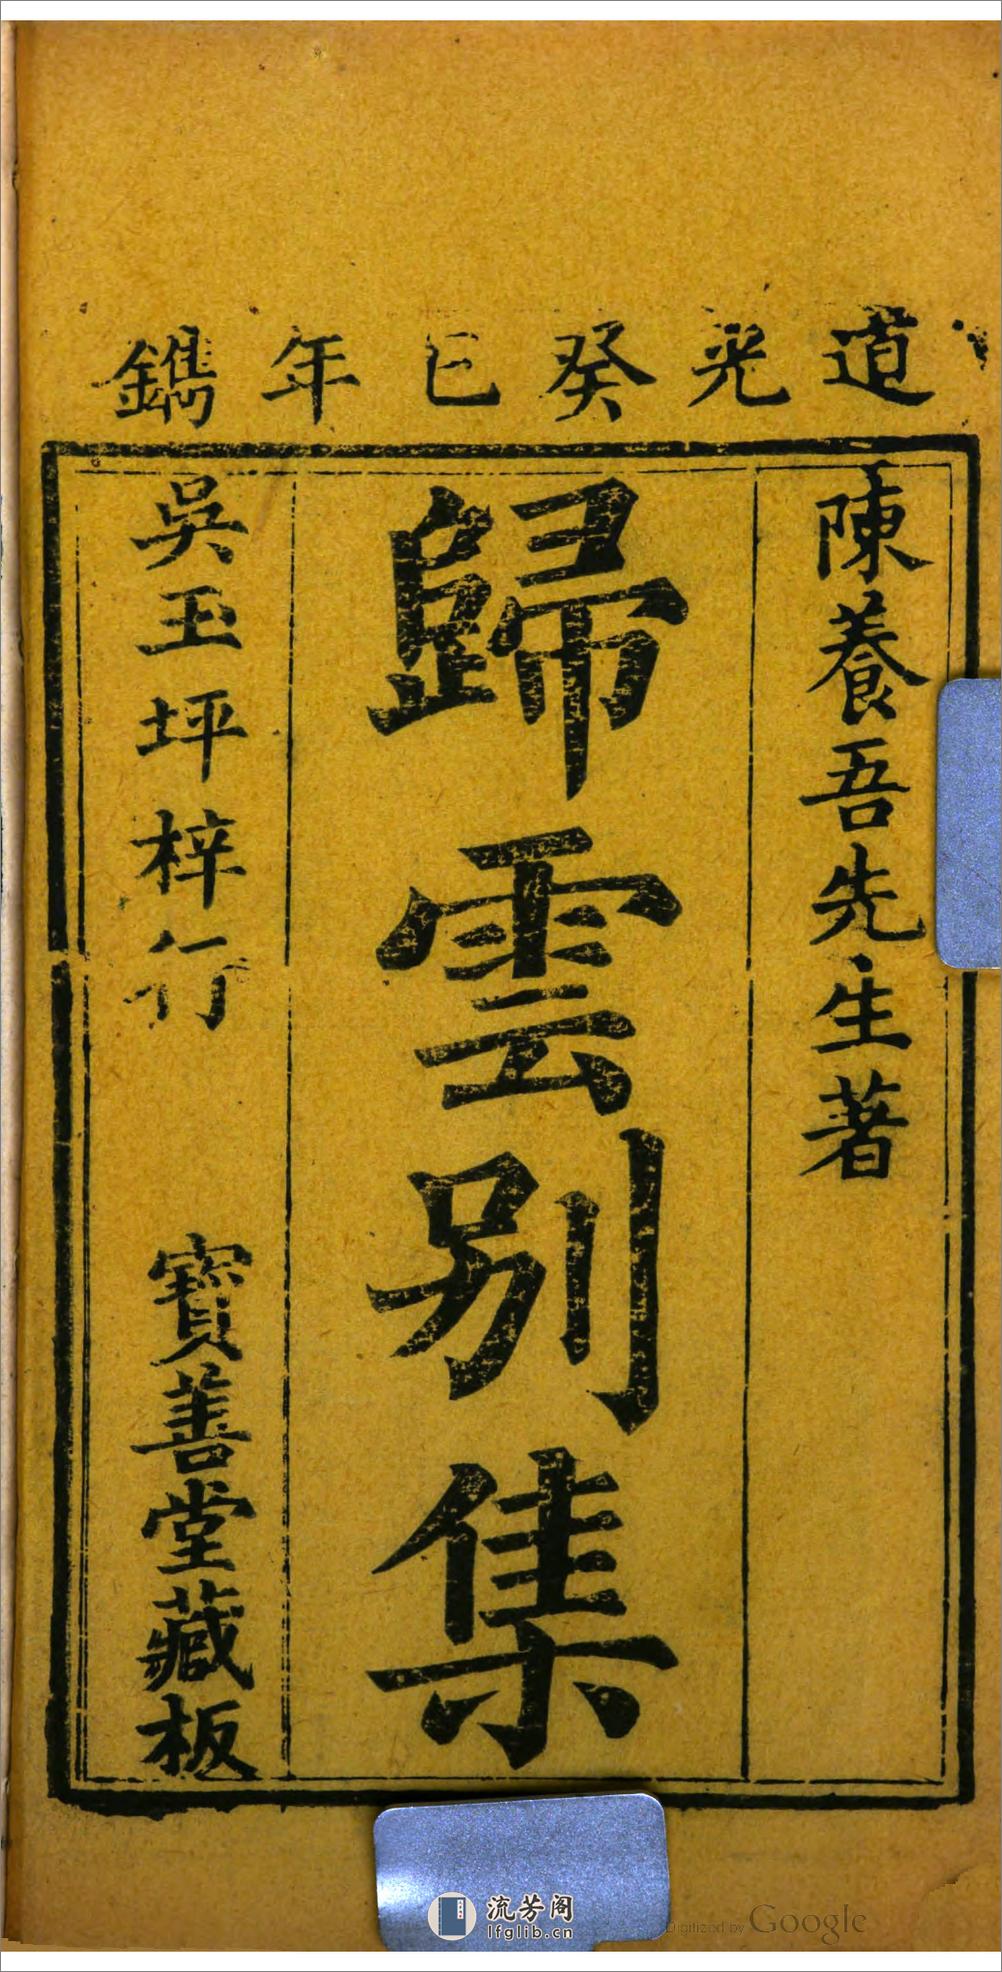 道光癸巳年鐫
陳養吾先生著
歸雲別集
吳玉坪梓行
寶善堂藏板
流芳阁
lfglib.cn
Digitized by Google